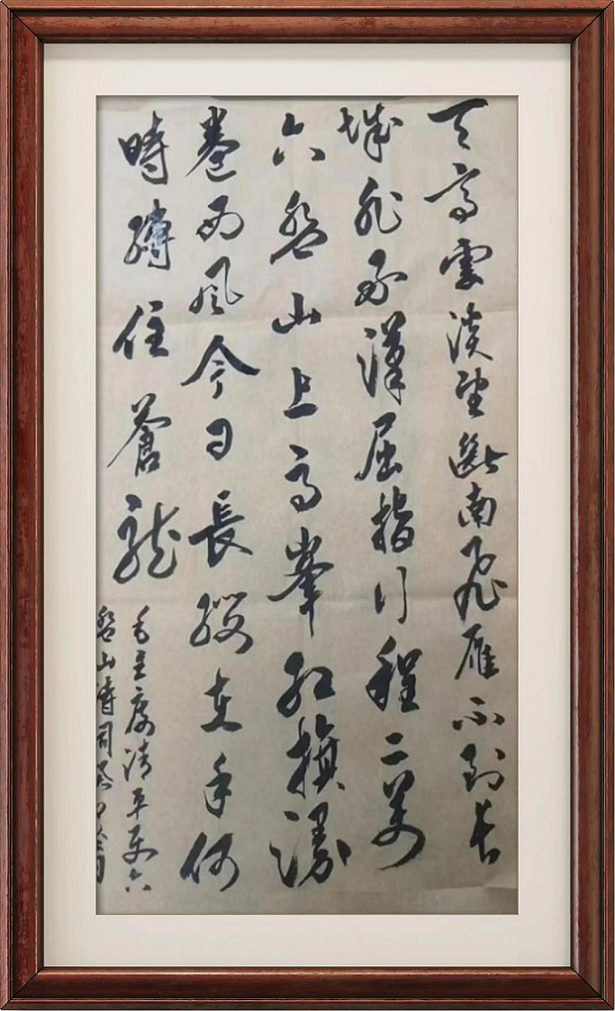 天高雲淡望斷南飛雁不到長
城非好漢屈指行程二萬
六盤山上高峯紅旗漫
卷西風今日長纓在手何
時縛住蒼龍
毛主席清平樂六
盤山詩詞癸卯